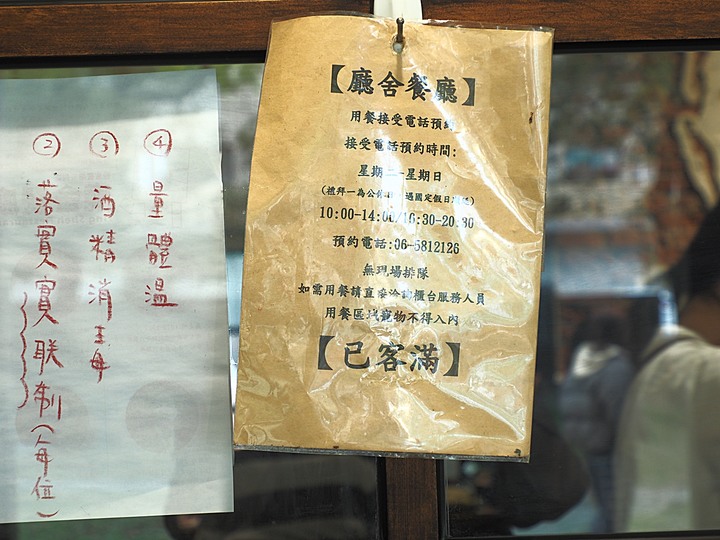 【廳舍餐廳】
用餐接受電話預約
接受電話預約時間:
星期二-星期日
(禮拜一為公休 遇國定假日
10:00-14:00/16:30-20:30
預約電話:06-5812126
無現場排隊
如需用餐請直接洽詢櫃台服務人員
用餐區域寵物不得入內
【已客滿】
④量體溫
③酒精消毒
②落實實联制(每位)